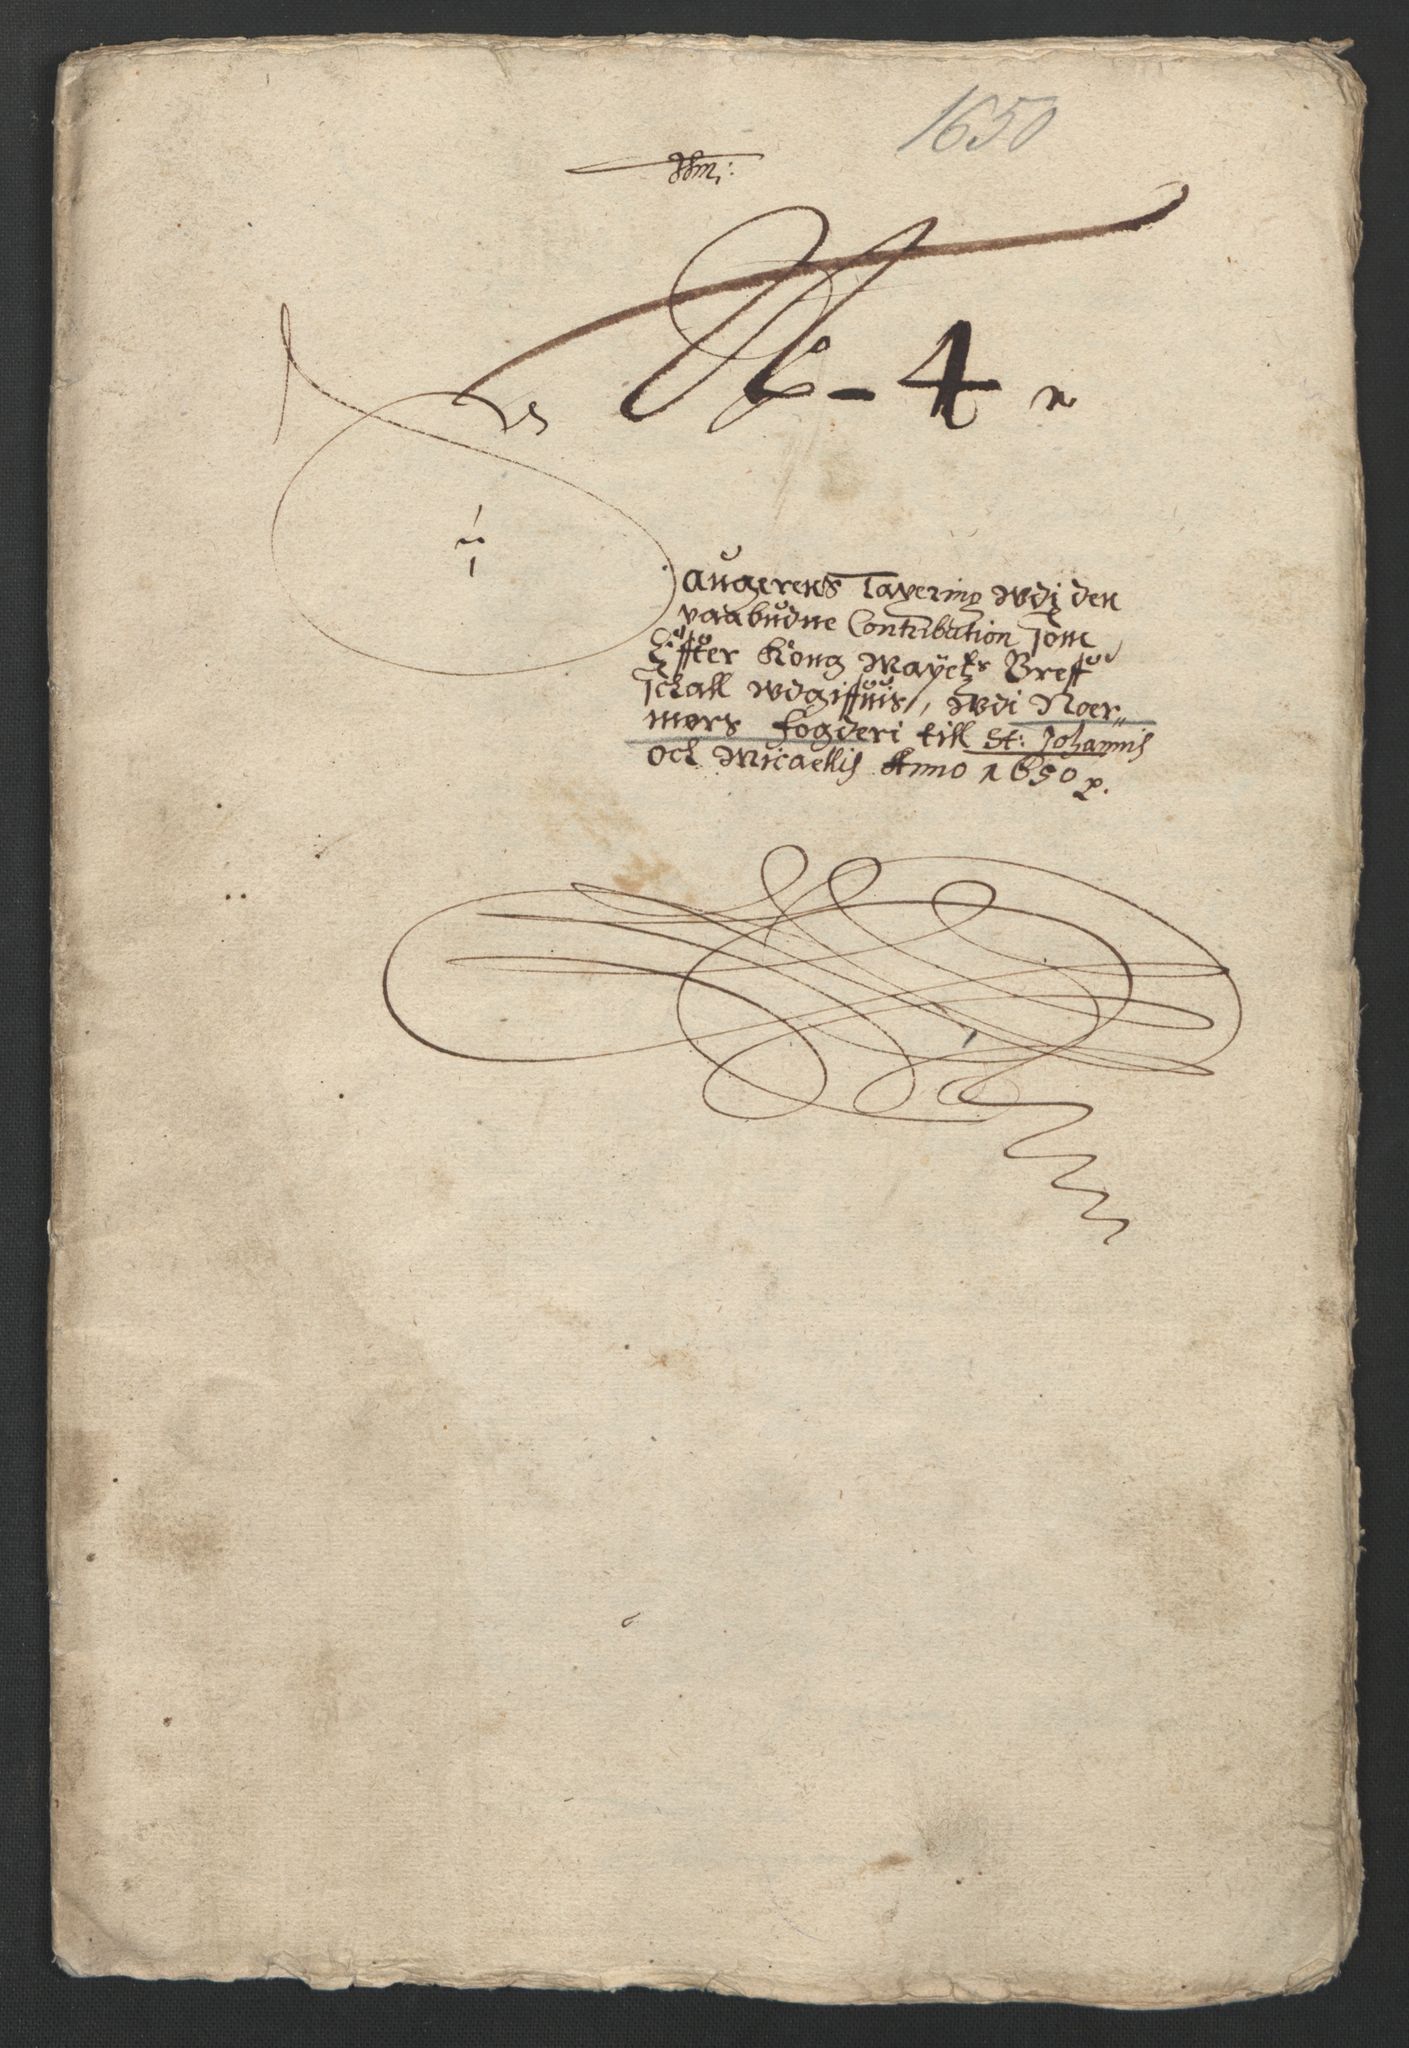 1650
No - 4
Laugerens Taxering Wdj den
paabudne Contribution Som
Effter Kong Mayets Breff
schall wdgiffuis, wdi Noer-
mørs fogderi till St: Johannis
och Micaellis Anno 1650